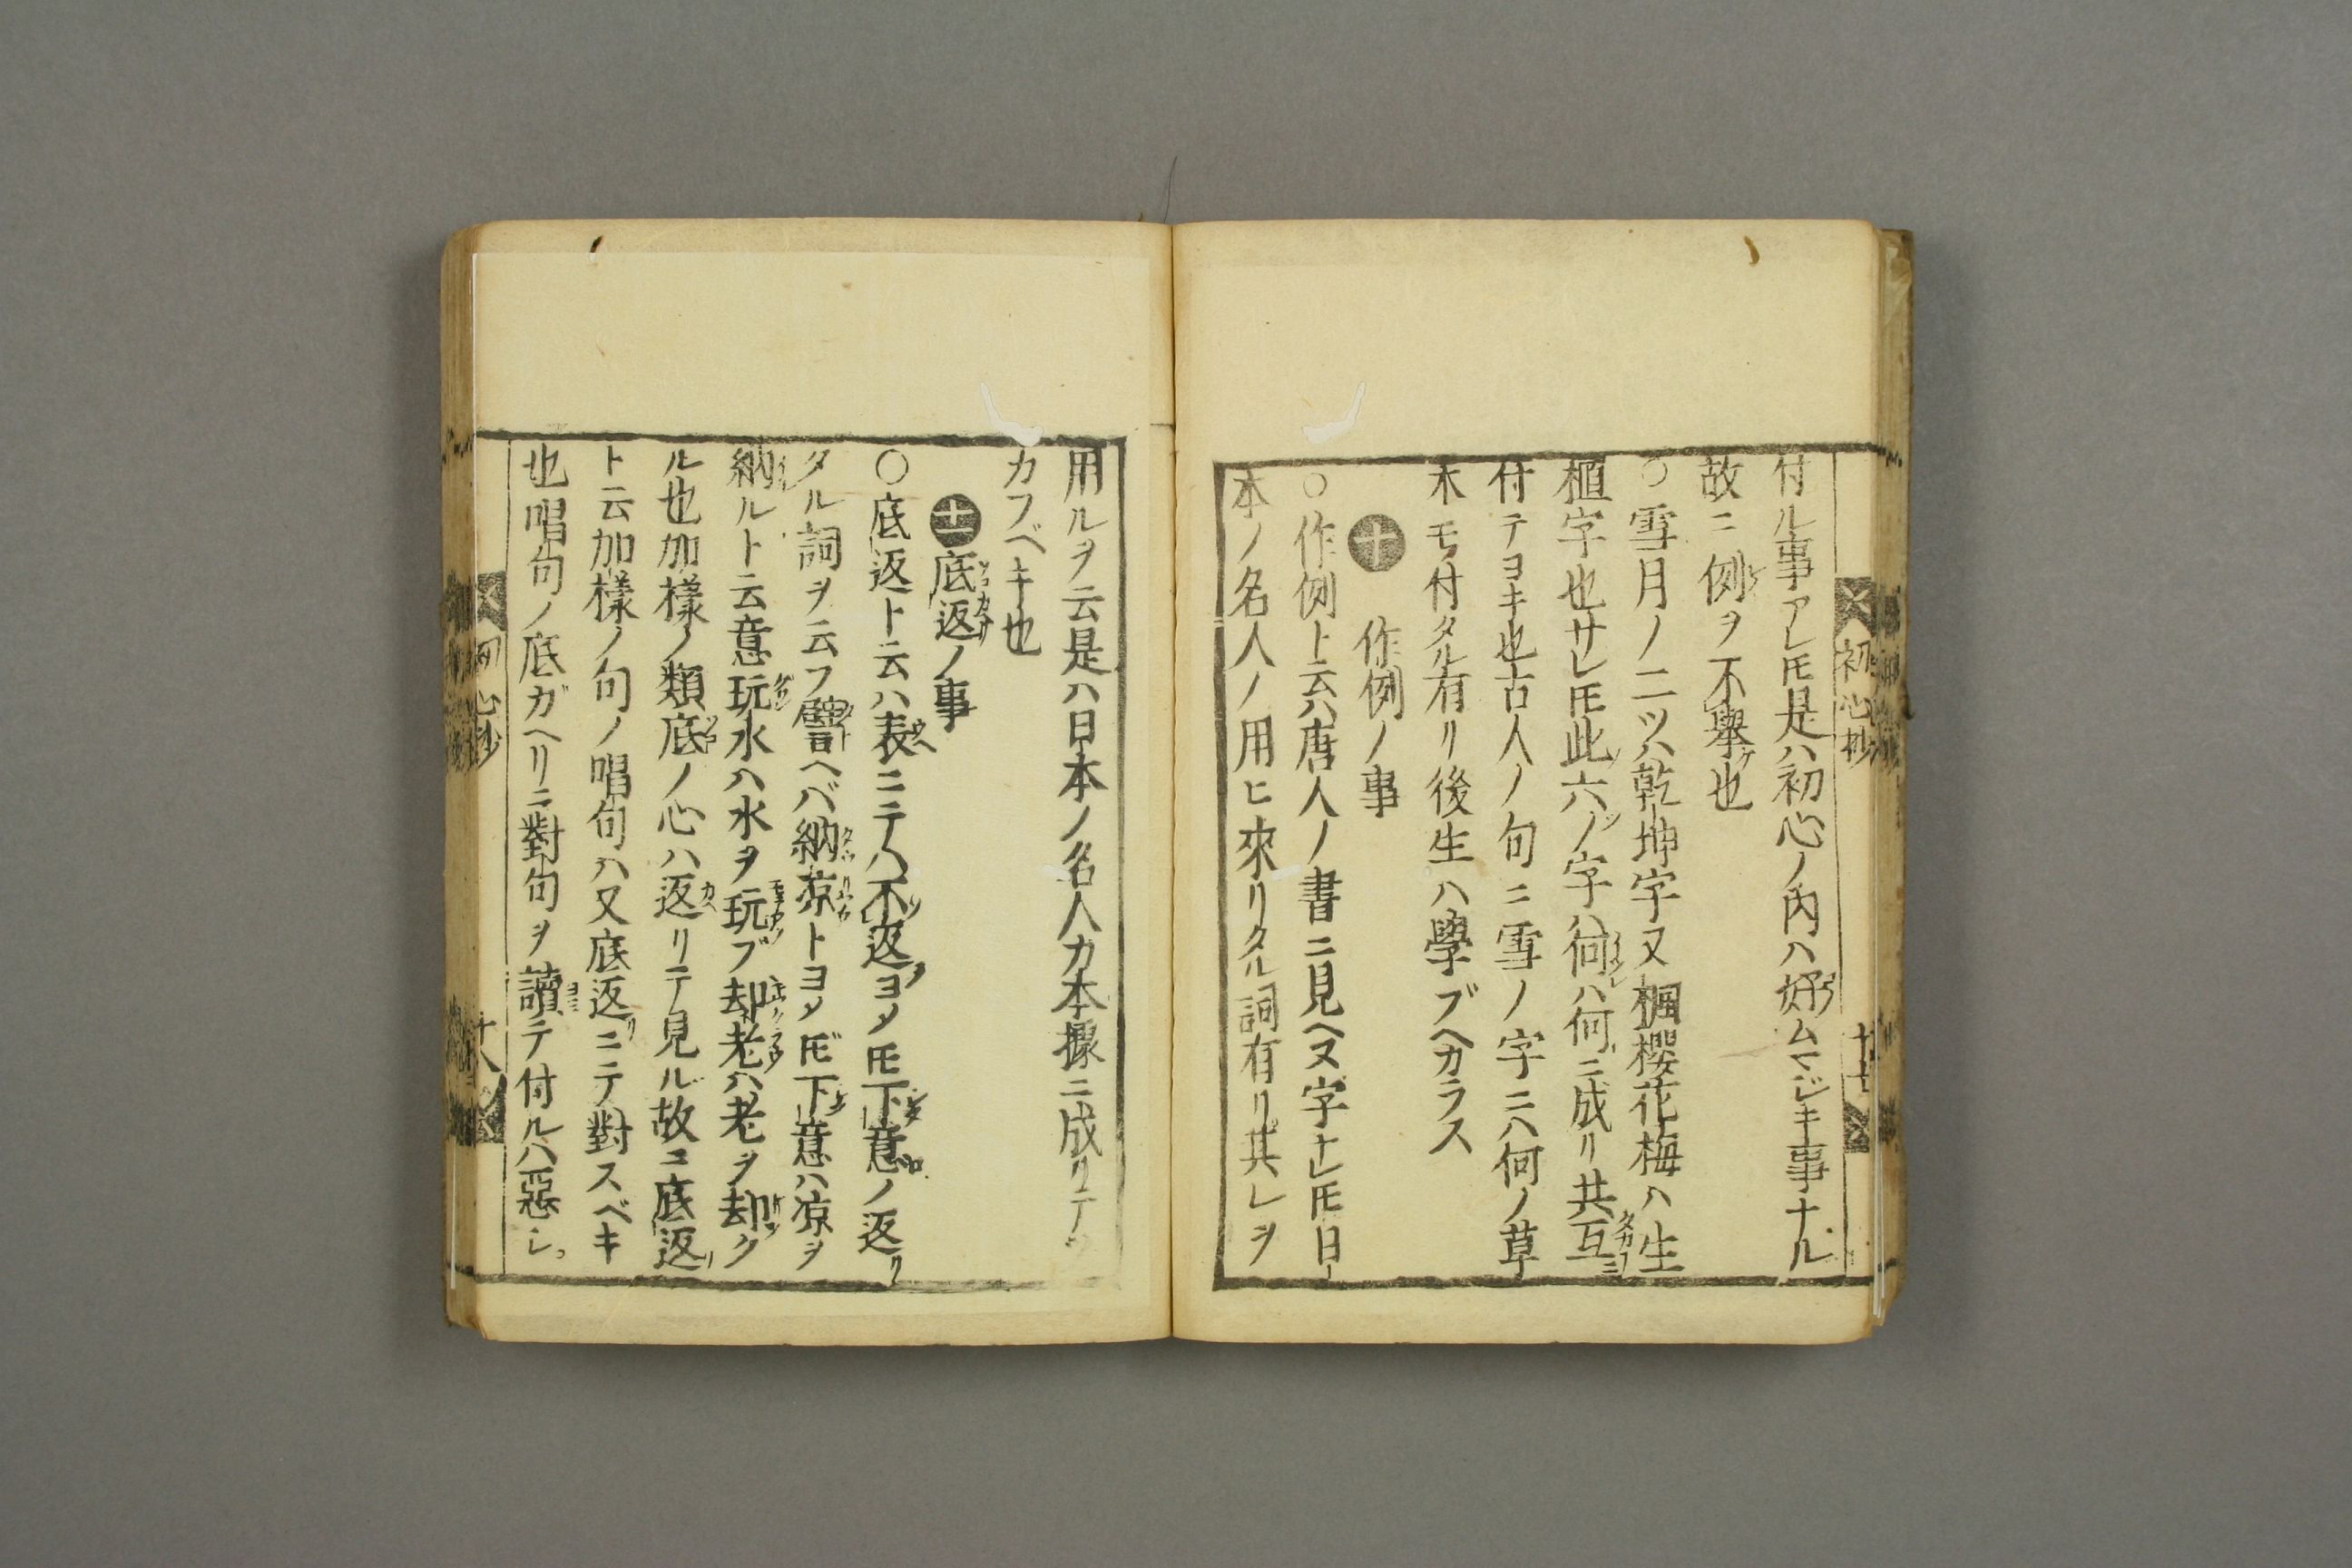 付ル事アレ𪜈是ハ初心ノ内ハ好ムマジキ事ナル
故ニ例ヲ不擧也
○雪月ノ二ツハ乾坤字又楓櫻花梅ハ生
植字也サレ𪜈此六ノ字ハ何ハ何ニ成リ共互
付テヨキ也古人ノ句ニ雪ノ字ニハ何ノ草
木モ付タル有リ後生ハ學ブヘカラス
十 作例ノ事
○作例ト云ハ唐人ノ書ニ見ヘヌ字ナレ𪜈日
本ノ名人ノ用ヒ來リタル詞有リ其レヲ
初心抄 十七
用ルヲ云是ハ日本ノ名人カ本據ニ成リテ
カフベキ也
十一 底返ノ事
○底返ト云ハ表ニテハ不返ヨメ𪜈下意ノ返リ
タル詞ヲ云フ譬ヘバ納凉トヨメ𪜈下意ハ凉ヲ
納ルト云意玩水ハ水ヲ玩ブ却老ハ老ヲ却ク
ル也加樣ノ類底ノ心ハ返リテ見ル故ニ底返
ト云加樣ノ句ノ唱句ハ又底返ニテ對スベキ
也唱句ノ底ガヘリニ對句ヲ讀テ付ルハ惡シ
初心抄 十八